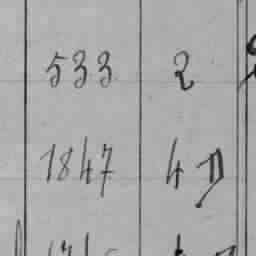 533 2
1847 4 D